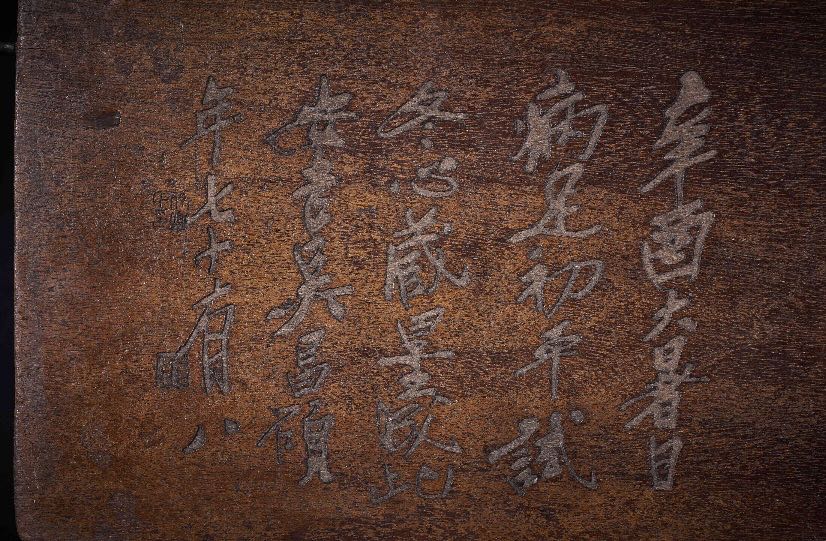 辛酉大暑日
病足初平試
冬心藏墨此
安吉吳昌碩
年七十有八